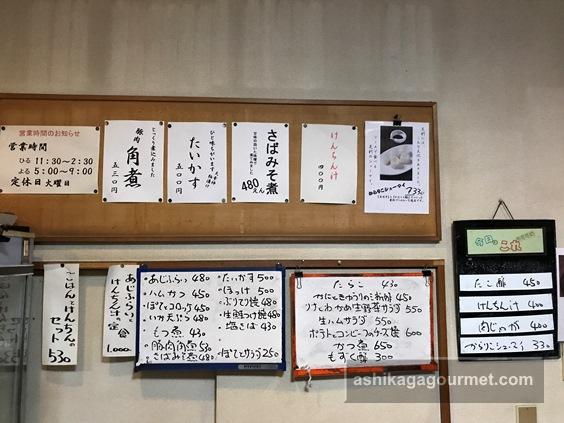 営業時間のお知らせ
営業時間
ひる 11:30～2:30
よる 5:00～9:00
定休日 火曜日
じっくり煮込みました
豚肉
角煮
五三〇円
ひと味ちがいます
たいかす
五〇〇円
さばみそ煮
480えん
けんちん汁
四〇〇円
330
今日はこれ
たこ酢 450
けんちん汁 400
肉じゃが 400
からりこシューマイ 330
ごはんとけんちん汁の
セット
530
あじふらい、
けんちん汁定食
1,000
・あじふらい 480
・ハムカツ 450
・ぽてとコロッケ 450
・いか天ぷら 480
もつ煮 430
・豚肉角煮 530
・さばみそ煮 480
・たいかす 500
・ほっけ 500
・ぶりてり焼 480
・生鮭つけ焼 480
・塩さば 430
・ぽてとサラダ 250
たらこ 430
かにときゅうりの三杯酢 450
りけんわかめ生野菜サラダ 550
生ハムサラダ 550
ポテトとコンビーフのチーズ焼 600
かつ煮 650
もずく酢 300
ashikagagourmet.com